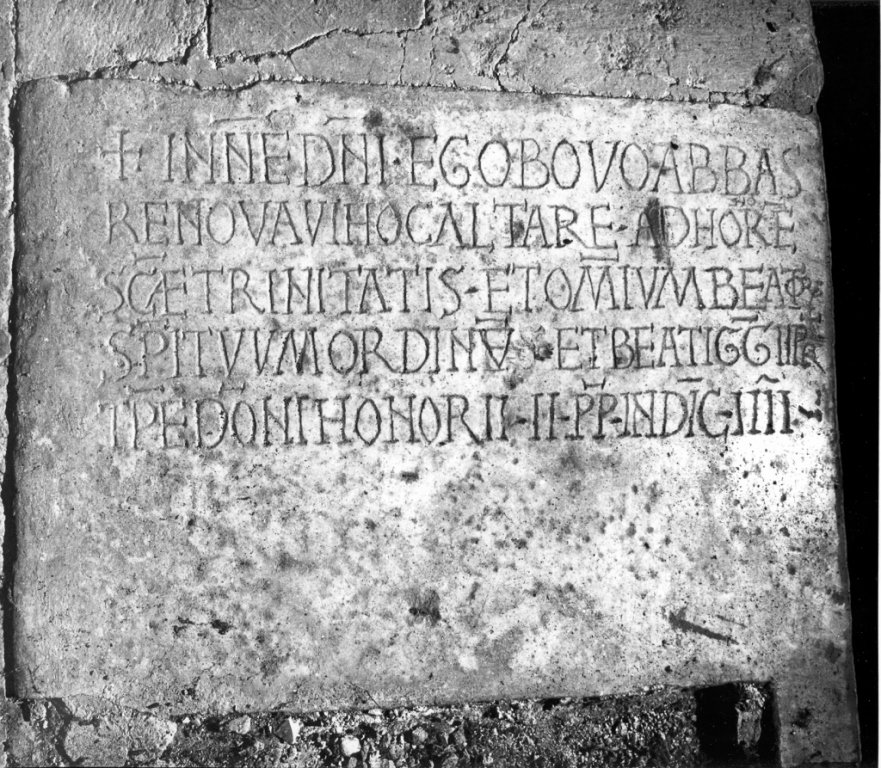 + IN N̅E D̅N̅I · EGO BOVO ABBAS
RENOVAVI HOC ALTARE · AD HORE̅
SC̅E TRINITATIS · ET OM̅IVM BEATOR
SP̅ITVVM ORDINV̅ ET BEATI GG̅II PP
TP̅E DO̅NI HONORII · II · P̅P · INDI̅C · IIII ·